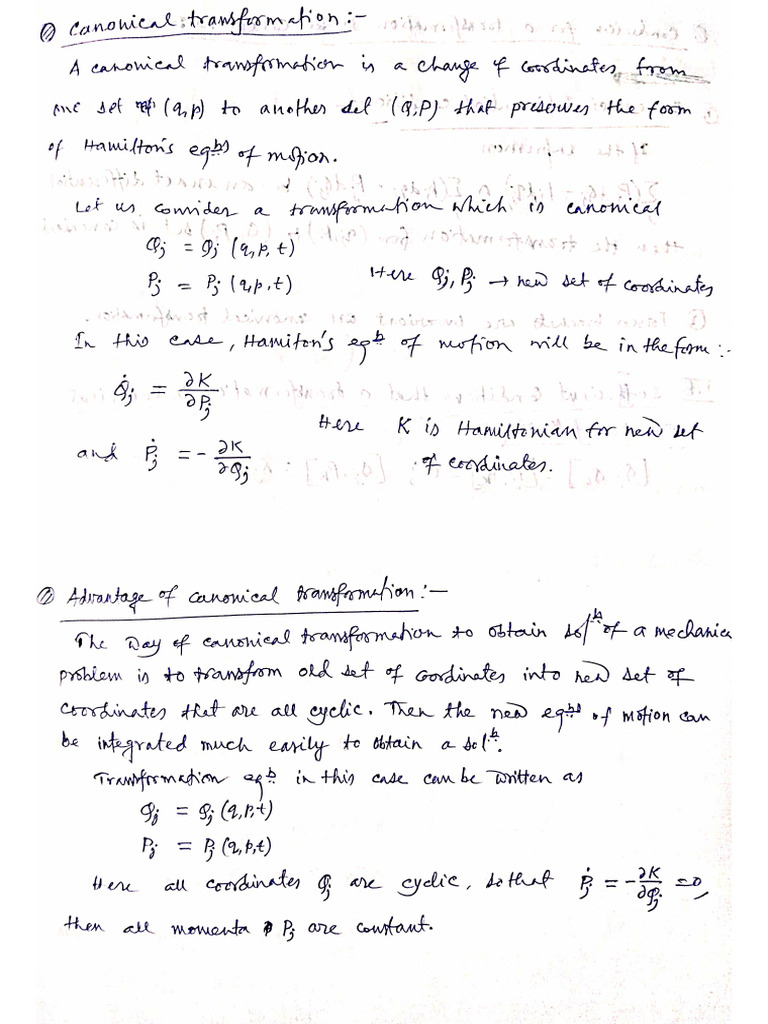 Canonical transformation :-
A canonical transformation is a change of coordinates from
one set of (q,p) to another set (Q,P) that preserves the form
of Hamilton's eqns of motion.
Let us consider a transformation which is canonical
Qj = Qj (q,p,t)
Pj = Pj (q,p,t) Here Qj, Pj → new set of coordinates
In this case, Hamiton's eqn of motion will be in the form :-
Q̇j = ∂K/∂Pj
Here K is Hamiltonian for new set
and Ṗj = - ∂K/∂Qj of coordinates.
Advantage of canonical transformation :-
The way of canonical transformation to obtain soln of a mechanica
problem is to transform old set of coordinates into new set of
coordinates that are all cyclic. Then the new eqns of motion can
be integrated much easily to obtain a soln.
Transformation eqn in this case can be written as
Qj = Qj (q,p,t)
Pj = Pj (q,p,t)
Here all coordinates Qj are cyclic, so that Ṗj = - ∂K/∂Qj = 0,
then all momenta Pj are constant.